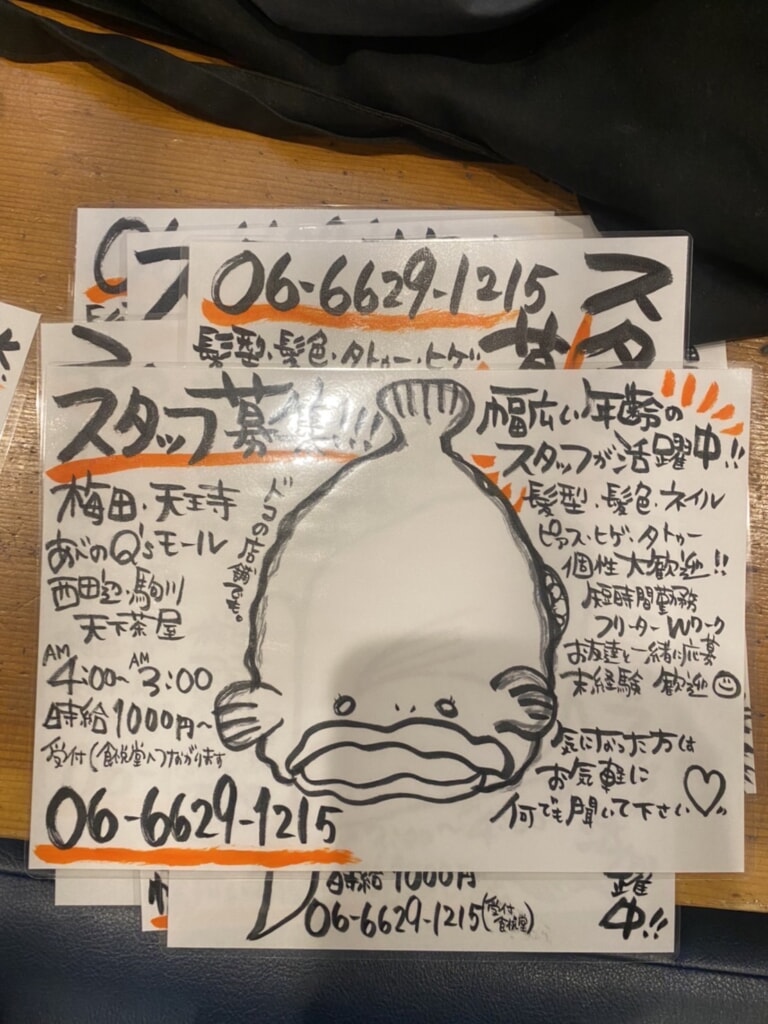 06-6629-1215
スタ
髪型・髪色・タトゥー・ヒゲ
スタッフ募集!!!
梅田・天王寺
あべのQ'sモール
西田辺・駒川
天下茶屋
ドコの店舗でも。
AM 4:00~AM 3:00
時給1000円~
受付(食悦堂へつながります
06-6629-1215
幅広い年齢の
スタッフが活躍中!!
髪型・髪色・ネイル
ピアス・ヒゲ・タトゥー
個性大歓迎!!
短時間勤務
フリーターWワーク
お友達と一緒に応募
未経験 歓迎
気になった方は
お気軽に
何でも聞いて下さい
時給1000円
06-6629-1215(受付 食悦堂)
躍中!!